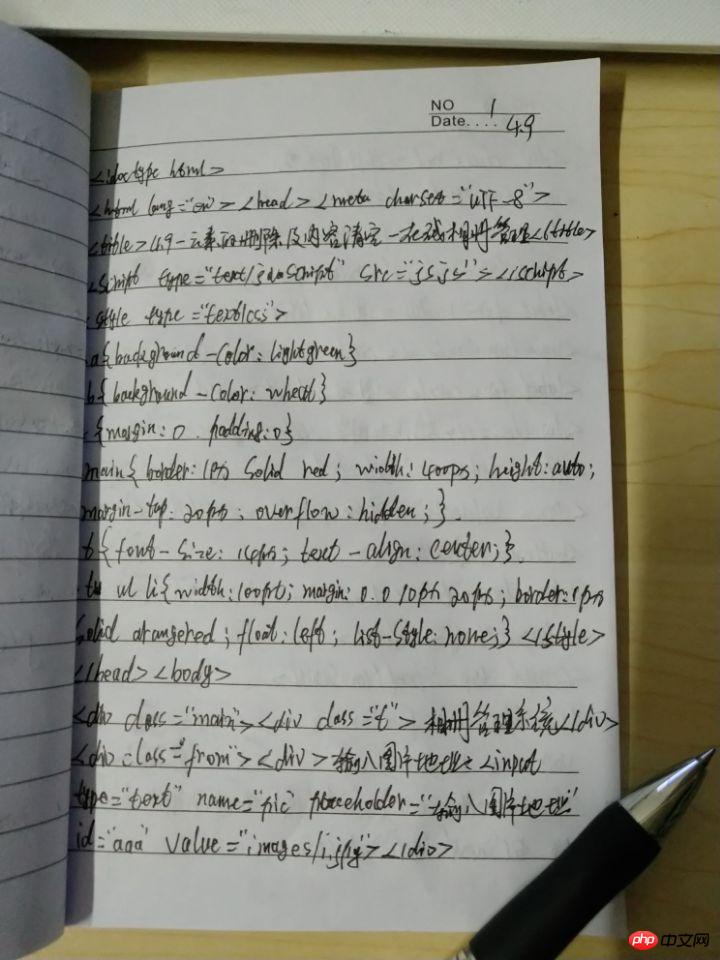 NO 1
Date.... 4.9
<!doctype html>
<html lang="en"><head><meta charset="UTF-8">
<title>4.9-元素的删除及内容清空-在线相册管理</title>
<script type="text/javascript" src="js.js"></script>
style type="text/css">
.a{background-color:lightgreen}
b{background-color:wheat}
{margin:0. padding:0}
main{border:1px solid red; width:400px; height:auto;
margin-top:20px; overflow:hidden;}.
t{font-size:14px; text-align:center;}.
ul li{width:100px; margin:0.0 10px 20px; border:1px
solid orangered; float:left; list-style:none;}</style>
</head><body>
<div class="main"><div class="t">相册管理系统</div>
<div class="from"><div>输入图片地址:<input
type="text" name="pic" placeholder="输入图片地址"
id="aaa" value="images/1.jpg"></div>
php 中文网